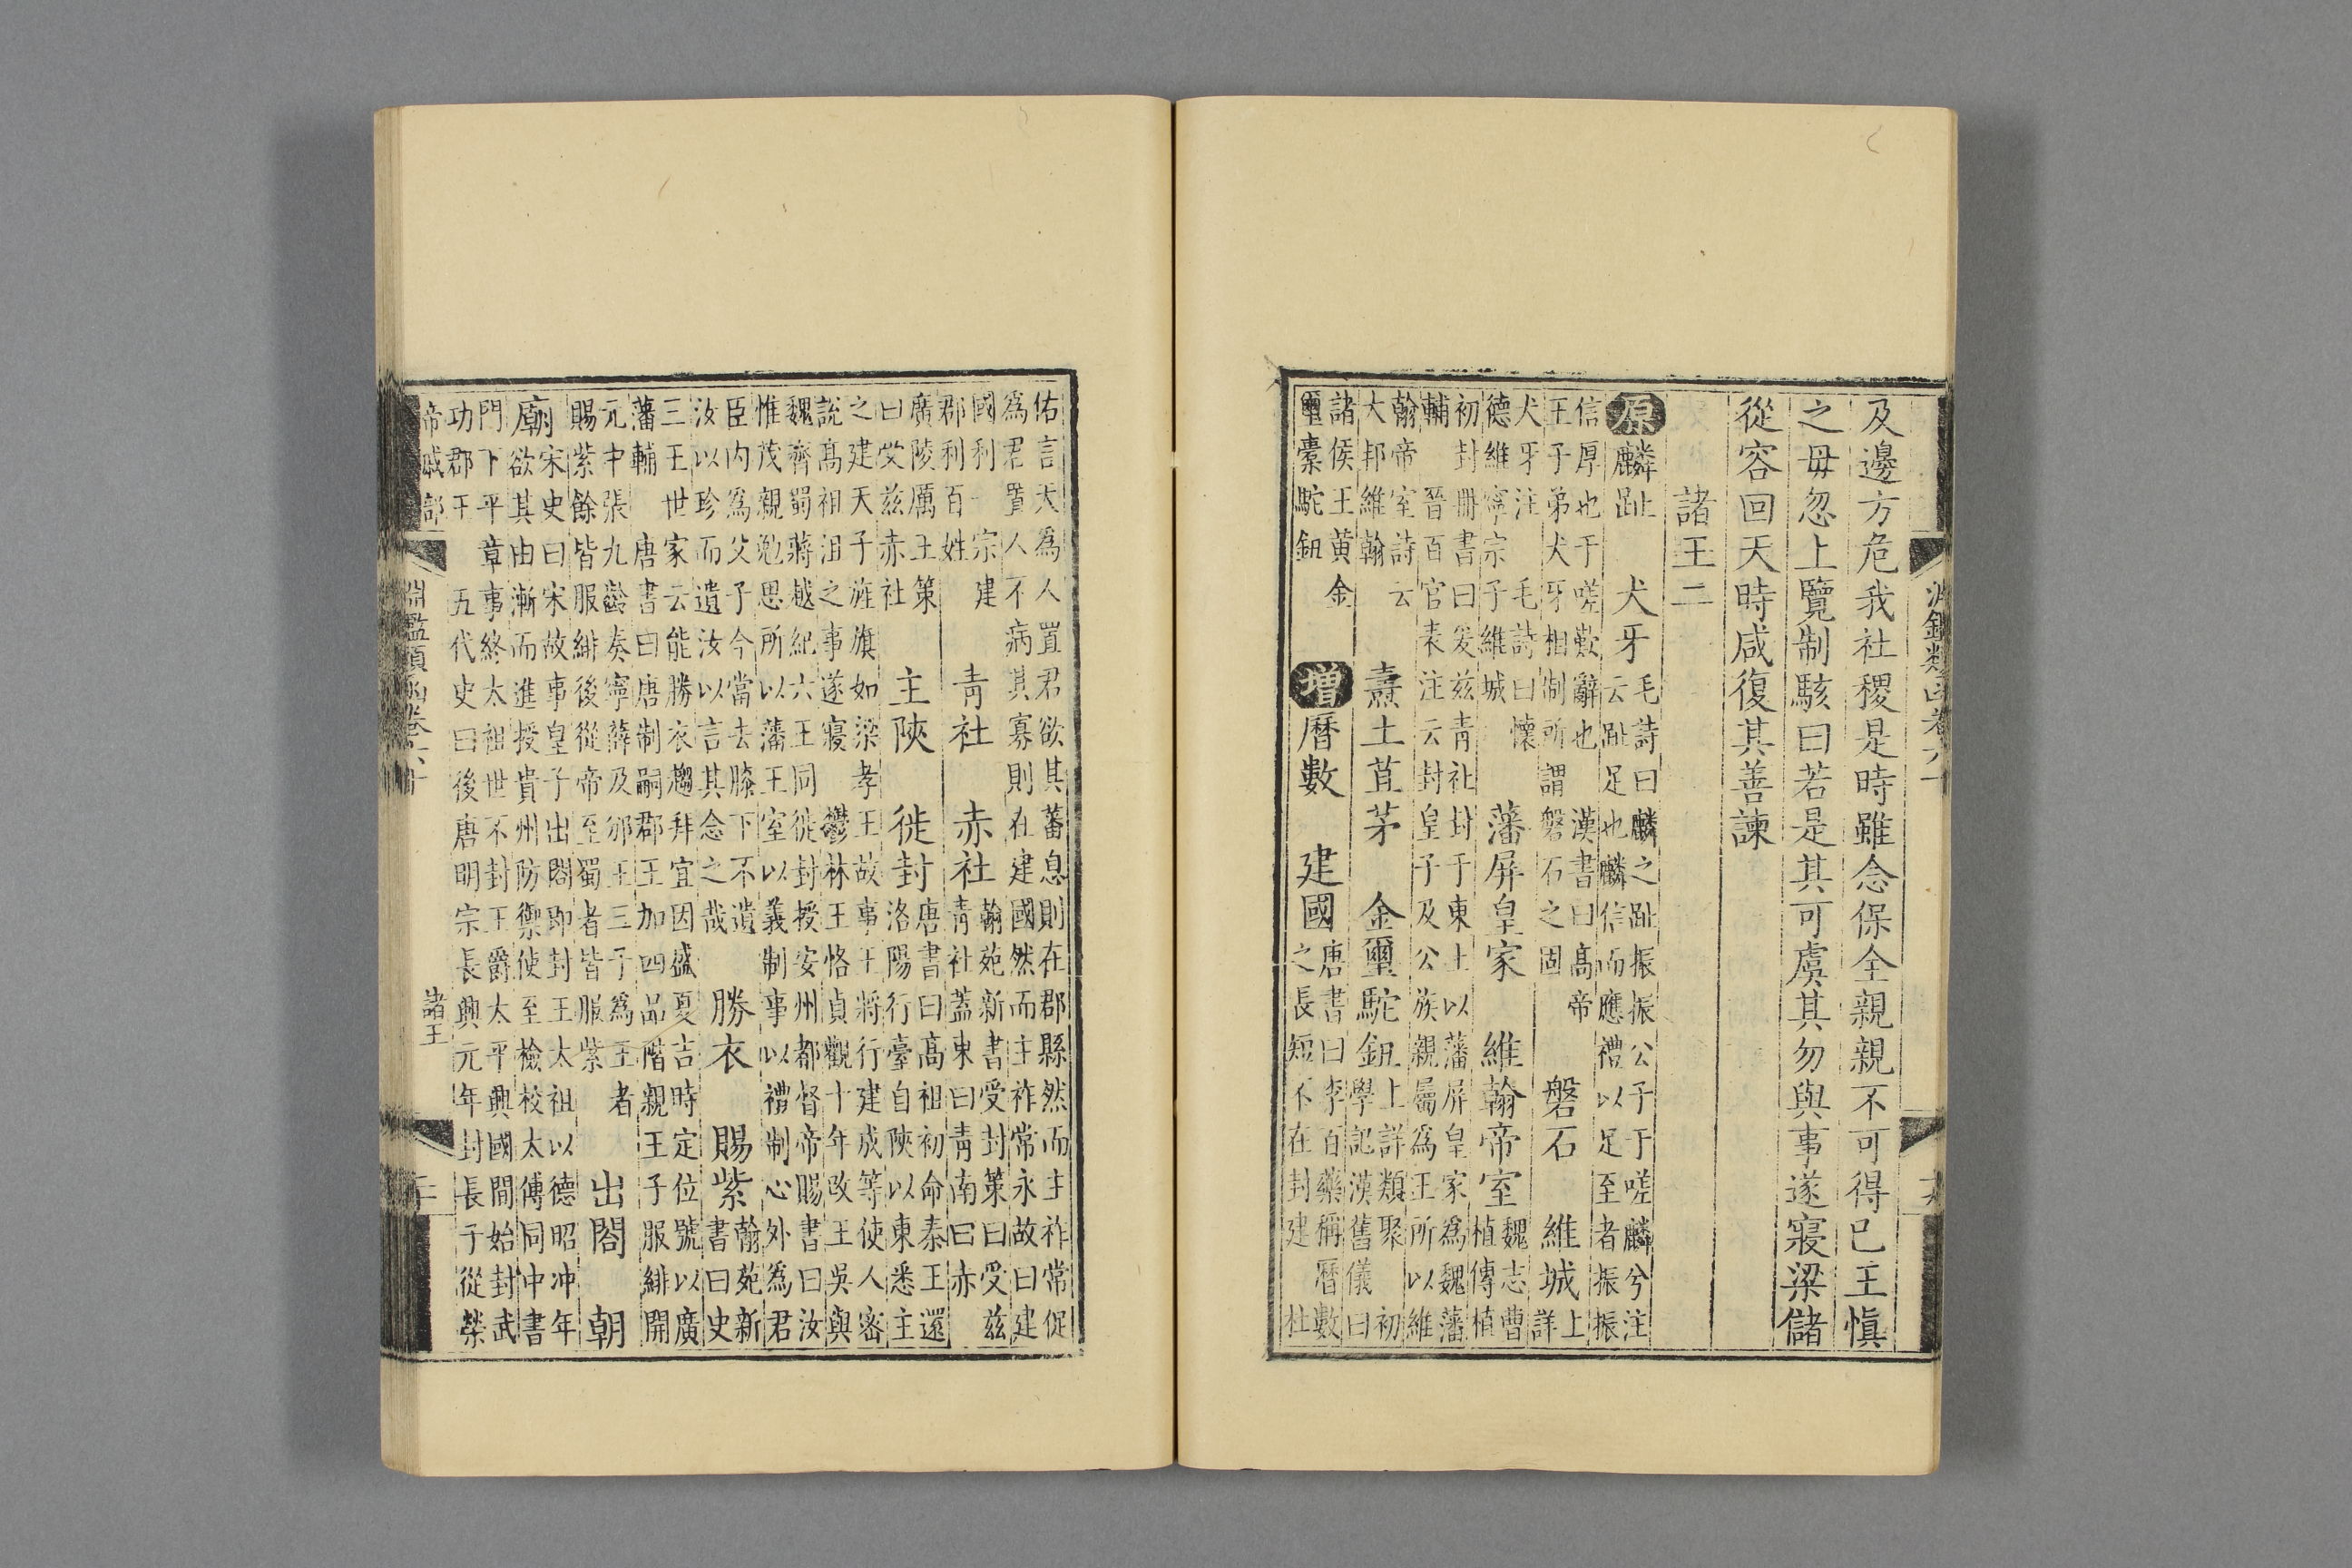 及邊方危我社稷是時雖念保全親親不可得已王慎
之毋忽上覽制駭曰若是其可虞其勿與事遂寢梁儲
從容回天時咸復其善諫
諸王二
原麟趾　犬牙
毛詩曰麟之趾振振公子于嗟麟兮注
云趾足也麟信而應禮以足至者振振
信厚也于嗟歎辭也　漢書曰高帝
王子弟犬牙相制所謂磐石之固
磐石　維城
上
詳
犬牙注　毛詩曰懷
德維寧宗子維城
藩屏皇家　維翰帝室
魏志曹
植傳植
初封冊書曰爰兹青社封于東土以藩屏皇家爲魏藩
輔　晉百官表注云封皇子及公族親屬爲王所以維
翰帝室詩云
大邦維翰
燾土苴茅　金璽駝鈕
上詳類聚　初
學記漢舊儀曰
諸侯王黄金
璽橐駝鈕
增曆數　建國
唐書曰李百藥稱曆數
之長短不在封建　杜
佑言天爲人置君欲其蕃息則在郡縣然而主祚常促
爲君置人不病其寡則在建國然而主祚常永故曰建
國利一宗建
郡利百姓
青社　赤社
翰苑新書受封策曰受兹
青社蓋東曰青南曰赤
廣陵厲王策
曰受兹赤社
主陝　徙封
唐書曰高祖初命秦王還
洛陽行臺自陝以東悉主
之建天子旌旗如梁孝王故事王將行建成等使人密
說高祖沮之事遂寢　鬱林王恪貞觀十年改王吳與
魏齊蜀蔣越紀六王同徙封授安州都督帝賜書曰汝
惟茂親勉思所以藩王室以義制事以禮制心外爲君
臣内爲父子今當去膝下不遺
汝以珍而遺汝以言其念之哉
勝衣　賜紫
翰苑新
書曰史
三王世家云能勝衣趨拜宜因盛夏吉時定位號以廣
藩輔　唐書曰唐制嗣郡王加四品階親王子服緋開
元中張九齡奏寧薛及邠王三子爲王者
賜紫餘皆服緋後從帝至蜀者皆服紫
出閤　朝
廟
宋史曰宋故事皇子出閤即封王太祖以德昭冲年
欲其由漸而進授貴州防禦使至檢校太傅同中書
門下平章事終太祖世不封王爵太平興國間始封武
功郡王　五代史曰後唐明宗長興元年封長子從榮
帝戚部　淵鑑類函卷六十　諸王